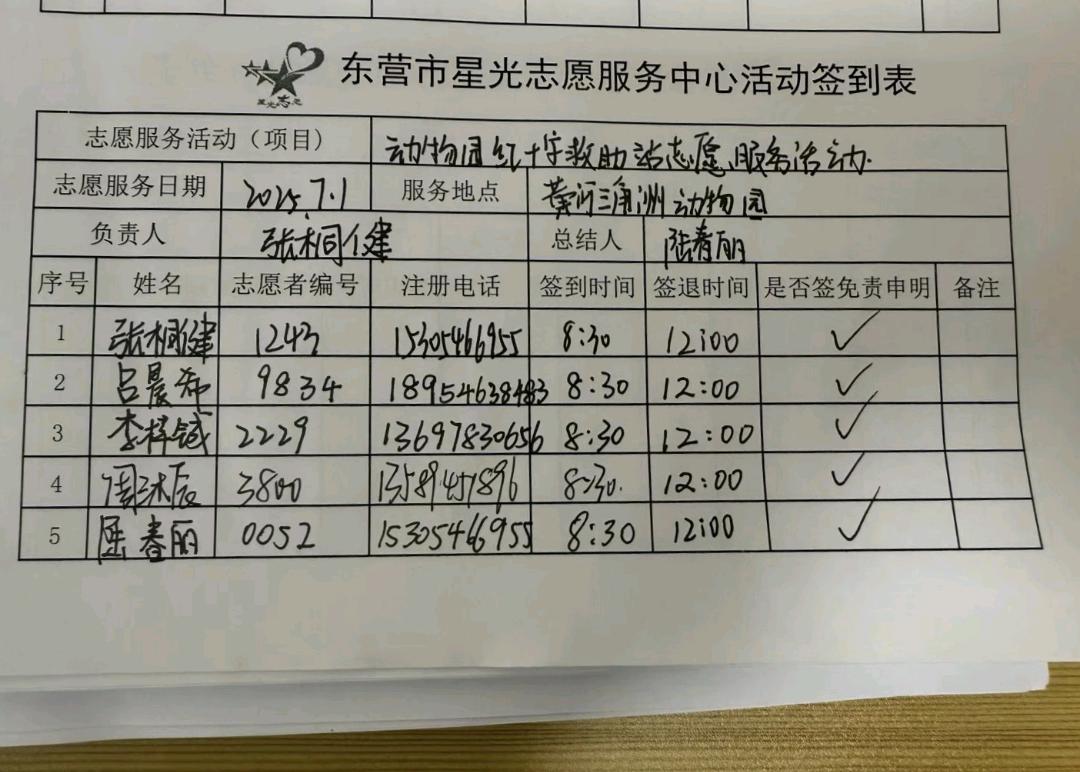 星光志愿
东营市星光志愿服务中心活动签到表
志愿服务活动（项目） 动物园红十字救助站志愿服务活动.
志愿服务日期 2025.7.1 服务地点 黄河三角洲动物园
负责人 张桐健 总结人 陆春丽
序号 姓名 志愿者编号 注册电话 签到时间 签退时间 是否签免责申明 备注
1 张桐健 1243 15305466955 8:30 12:00 ✓
2 吕晨希 9834 18954638483 8:30 12:00 ✓
3 李梓铖 2229 13697830656 8:30 12:00 ✓
4 周沐辰 3800 13589457896 8:30. 12:00 ✓
5 春丽 0052 15305466955 8:30 12:00 ✓